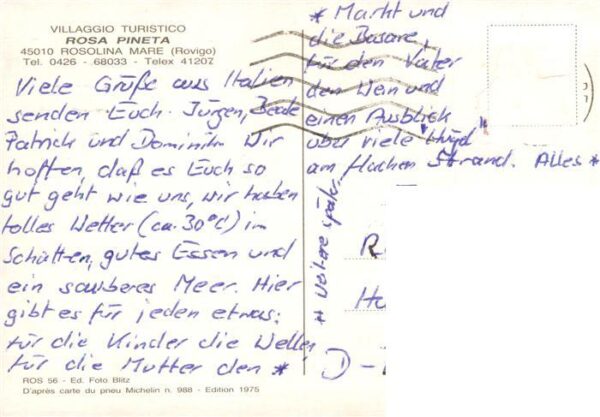 VILLAGGIO TURISTICO
ROSA PINETA
45010 ROSOLINA MARE (Rovigo)
Tel. 0426 - 68033 - Telex 41207
Viele Grüße aus Italien
senden Euch Jürgen, Beate
Patrick und Dominik. Wir
hoffen, daß es Euch so
gut geht wie uns, wir haben
tolles Wetter (ca. 30°C) im
Schatten, gutes Essen und
ein sauberes Meer. Hier
gibt es für jeden etwas:
für die Kinder die Wellen,
für die Mutter den *
* Markt und
die Basare,
für den Vater
den Wein und
einen Ausblick
über viele
am flachen Strand. Alles *
* Weitere später.
D -
ROS 56 - Ed. Foto Blitz
D'après carte du pneu Michelin n. 988 - Edition 1975